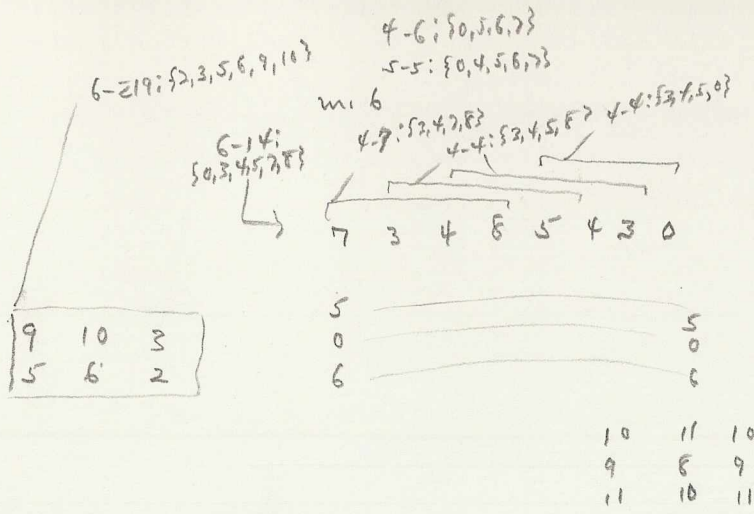 4-6: {0,5,6,7}
5-5: {0,4,5,6,7}
6-Z19: {2,3,5,6,9,10}
m. 6
6-14:
{0,3,4,5,7,8}
4-7: {3,4,7,8}
4-4: {3,4,5,8}
4-4: {3,4,5,0}
7 3 4 8 5 4 3 0
5 5
0 0
6 6
9 10 3
5 6 2
10 11 10
9 8 9
11 10 11